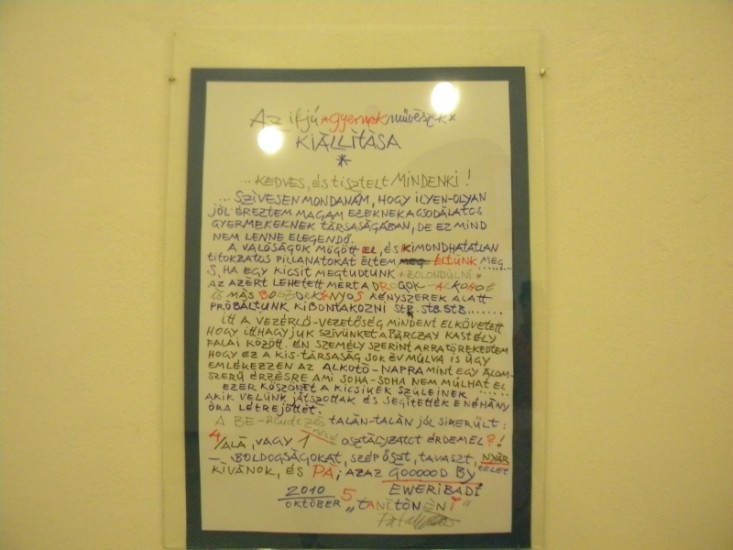 AZ ifjú "gyermekművészek"
KIÁLLÍTÁSA
*
...KEDVES, és tisztelt MINDENKI!
...SZÍVESEN MONDANÁM, HOGY ILYEN-OLYAN
JÓL ÉREZTEM MAGAM EZEKNEK A CSODÁLATOS
GYERMEKEKNEK TÁRSASÁGÁBAN, DE EZ MIND
NEM LENNE ELEGENDŐ.
A VALÓSÁGOK MÖGÖTT EL, ÉS KIMONDHATATLAN
TITOKZATOS PILLANATOKAT ÉLTEM MEG ÉLTÜNK MEG
S, HA EGY KICSIT MEGTUDTUNK "BOLONDULNI"
AZ AZÉRT LEHETETT MERT A DROGOK - ALKOHOL
ÉS MÁS KÉNYSZEREK ALATT
PRÓBÁLTUNK KIBONTAKOZNI STB. STB. STB.......
ITT A VEZÉRLŐ-VEZETŐSÉG MINDENT ELKÖVETETT
HOGY ITTHAGYJUK SZÍVÜNKET A PARCZAY KASTÉLY
FALAI KÖZÖTT. ÉN SZEMÉLY SZERINT ARRA TÖREKEDTEM
HOGY EZ A KIS-TÁRSASÁG SOK ÉV MÚLVA IS ÚGY
EMLÉKEZZEN AZ ALKOTÓ-NAPRA MINT EGY ÁLOM-
SZERŰ ÉRZÉSRE AMI SOHA-SOHA NEM MÚLHAT EL
EZER KÖSZÖNET A KICSIKÉK SZÜLEINEK
AKIK VELÜNK JÁTSZOTTAK ÉS SEGÍTETTÉK E NÉHÁNY
ÓRA LÉTREJÖTTÉT.
A BE-RENDEZÉS TALÁN-TALÁN JÓL SIKERÜLT:
4/ALÁ, VAGY 1 OSZTÁLYZATOT ÉRDEMEL?!
— BOLDOGSÁGOKAT, SZÉP ŐSZT, TAVASZT, NYÁR
TELET
KÍVÁNOK, ÉS PÁ, AZAZ GOOOOOD BY
EWERIBADI
2010 5 "TANÍTÓNÉNI"
OKTÓBER